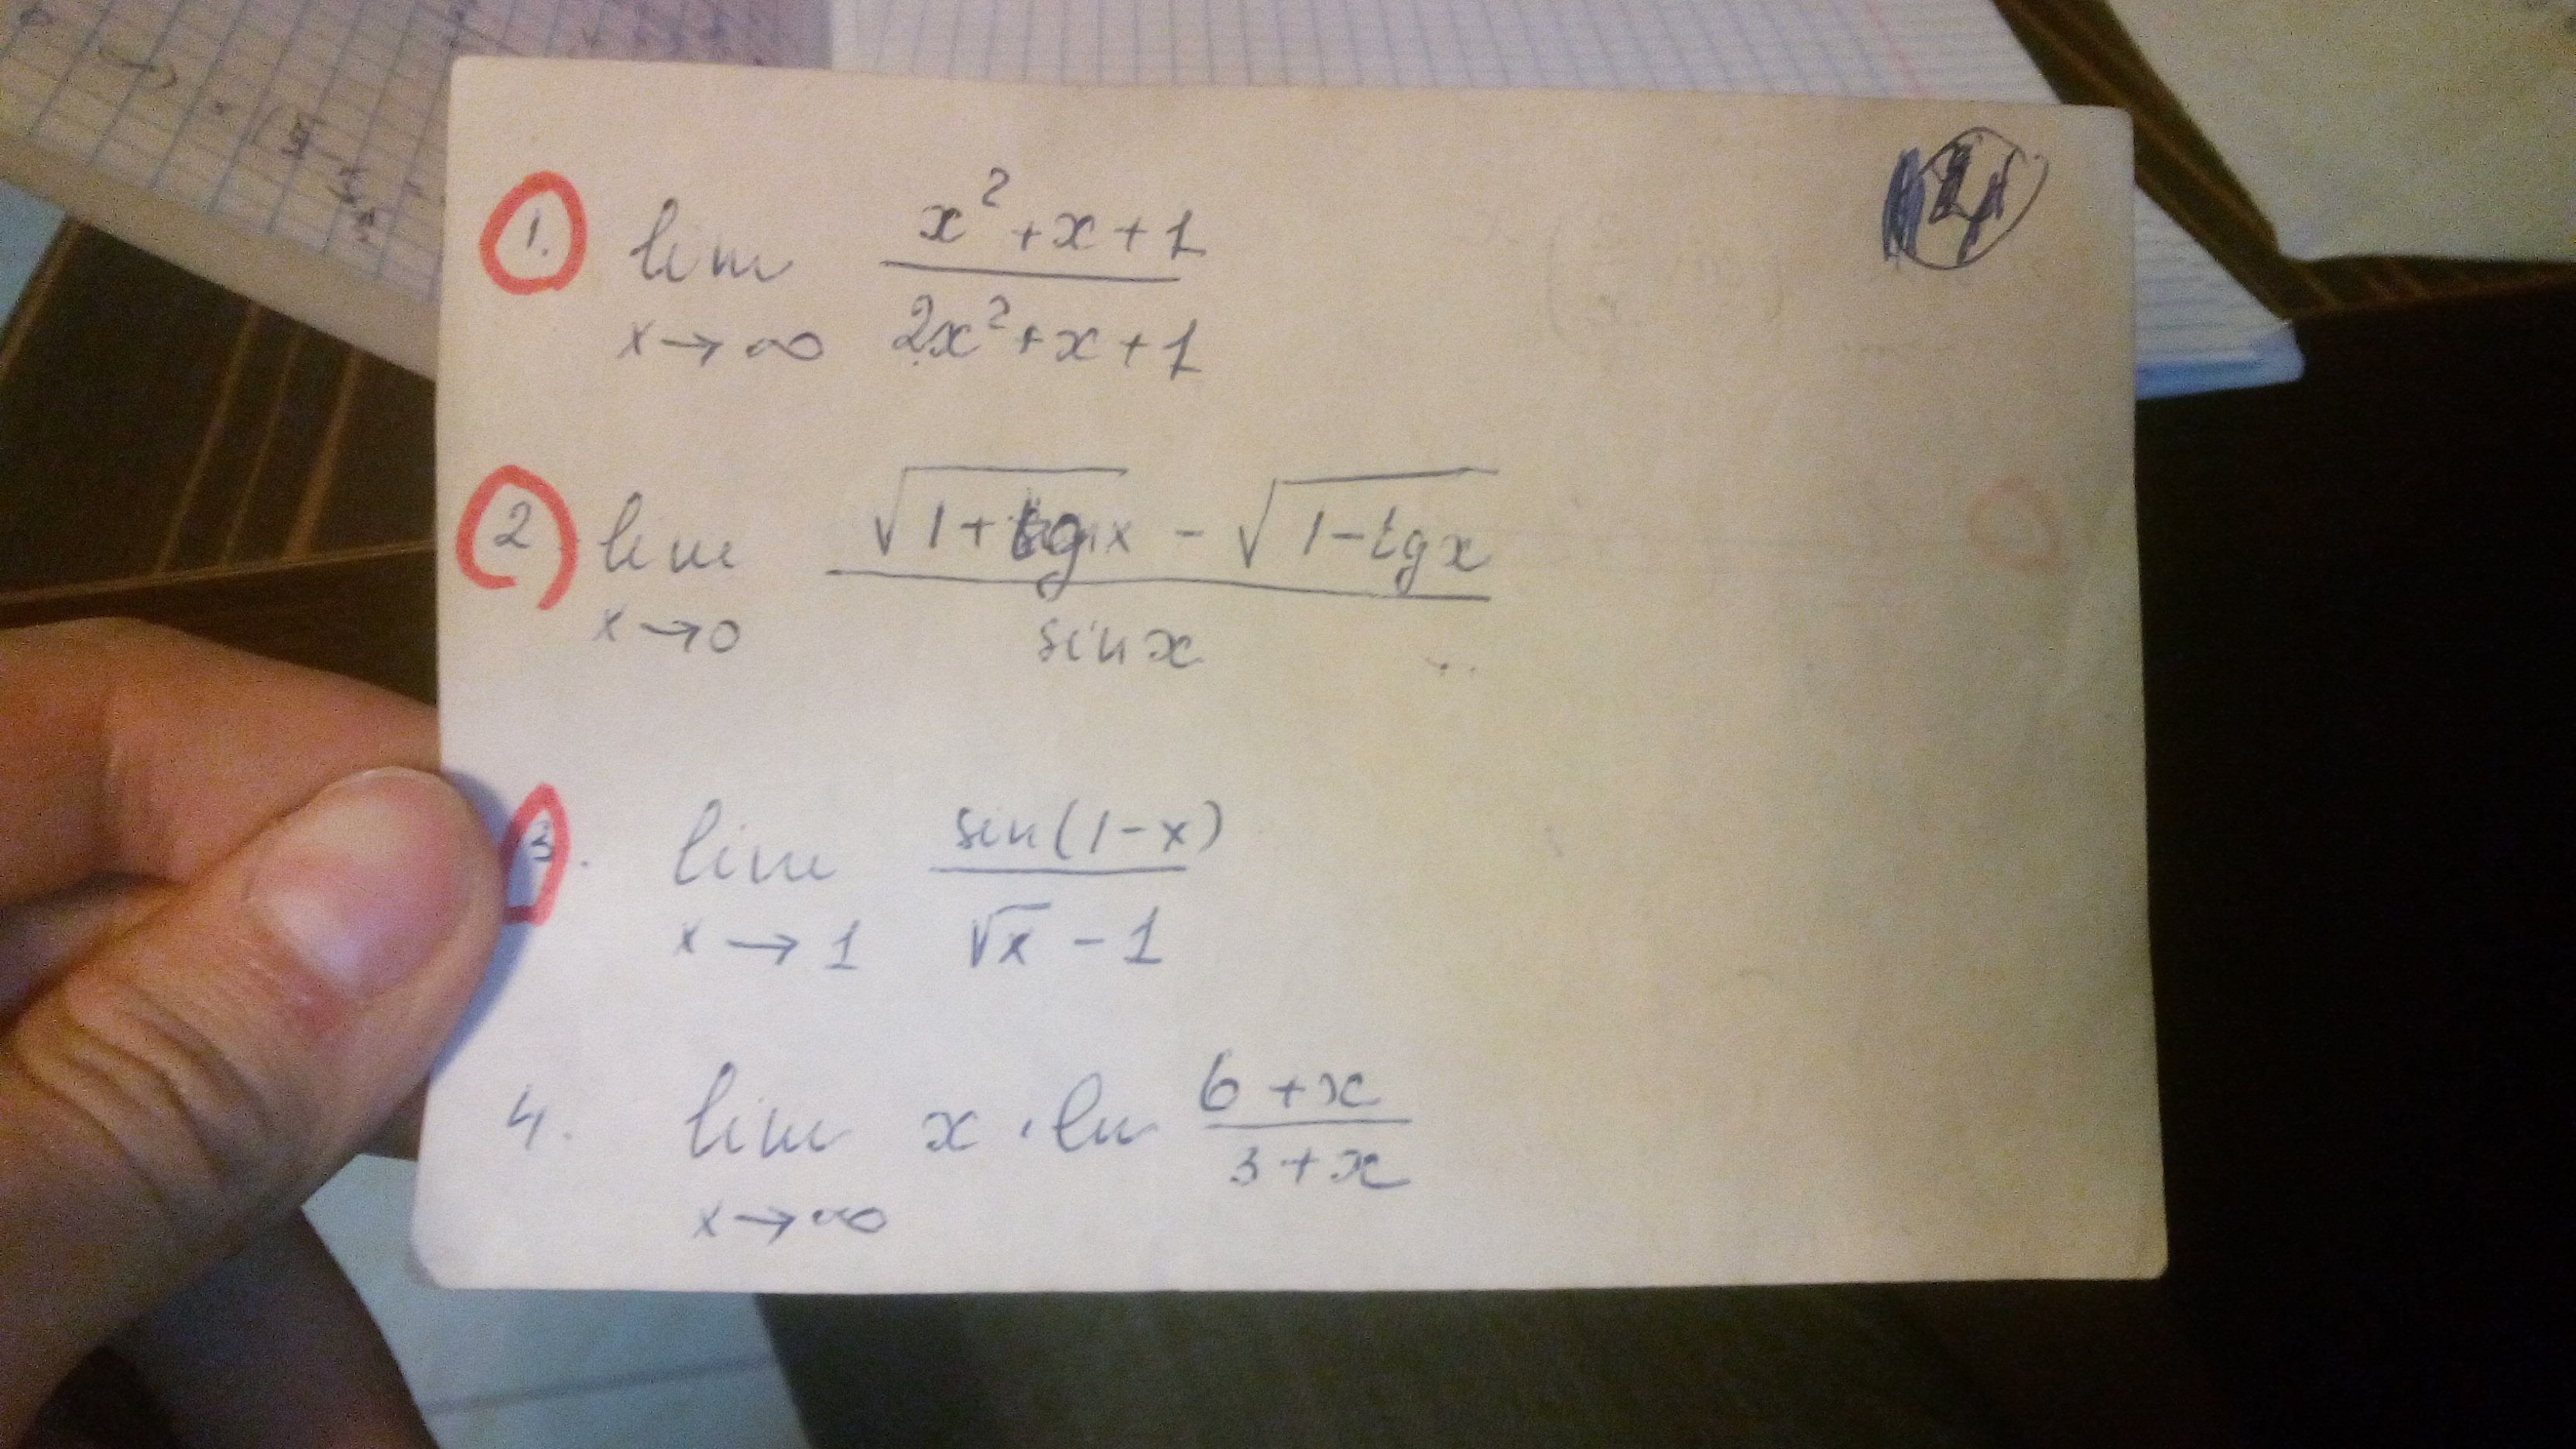 14
1. lim x→∞ (x² + x + 1) / (2x² + x + 1)
2. lim x→0 (√(1 + tg x) - √(1 - tg x)) / sin x
3. lim x→1 sin(1 - x) / (√x - 1)
4. lim x→∞ x · ln (6 + x) / (3 + x)